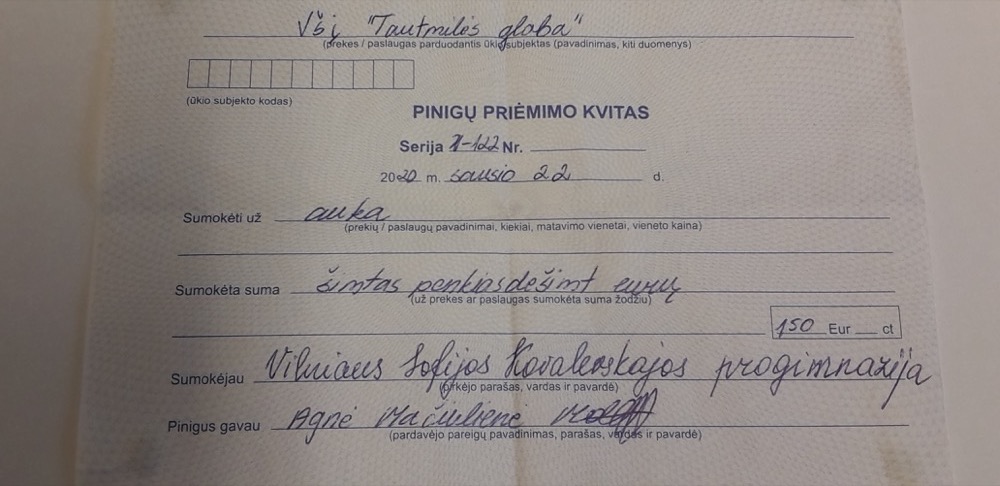 VšĮ "Tautmilės globa"
(prekes / paslaugas parduodantis ūkio subjektas (pavadinimas, kiti duomenys)
(ūkio subjekto kodas)
PINIGŲ PRIĖMIMO KVITAS
Serija 1-122 Nr.
2020 m. sausio 22 d.
Sumokėti už auka
(prekių / paslaugų pavadinimai, kiekiai, matavimo vienetai, vieneto kaina)
Sumokėta suma šimtas penkiasdešimt eurų
(už prekes ar paslaugas sumokėta suma žodžiu)
150 Eur ct
Sumokėjau Vilniaus Sofijos Kovalevskajos progimnazija
(pirkėjo parašas, vardas ir pavardė)
Pinigus gavau Agnė Mačiulienė
(pardavėjo pareigų pavadinimas, parašas, vardas ir pavardė)